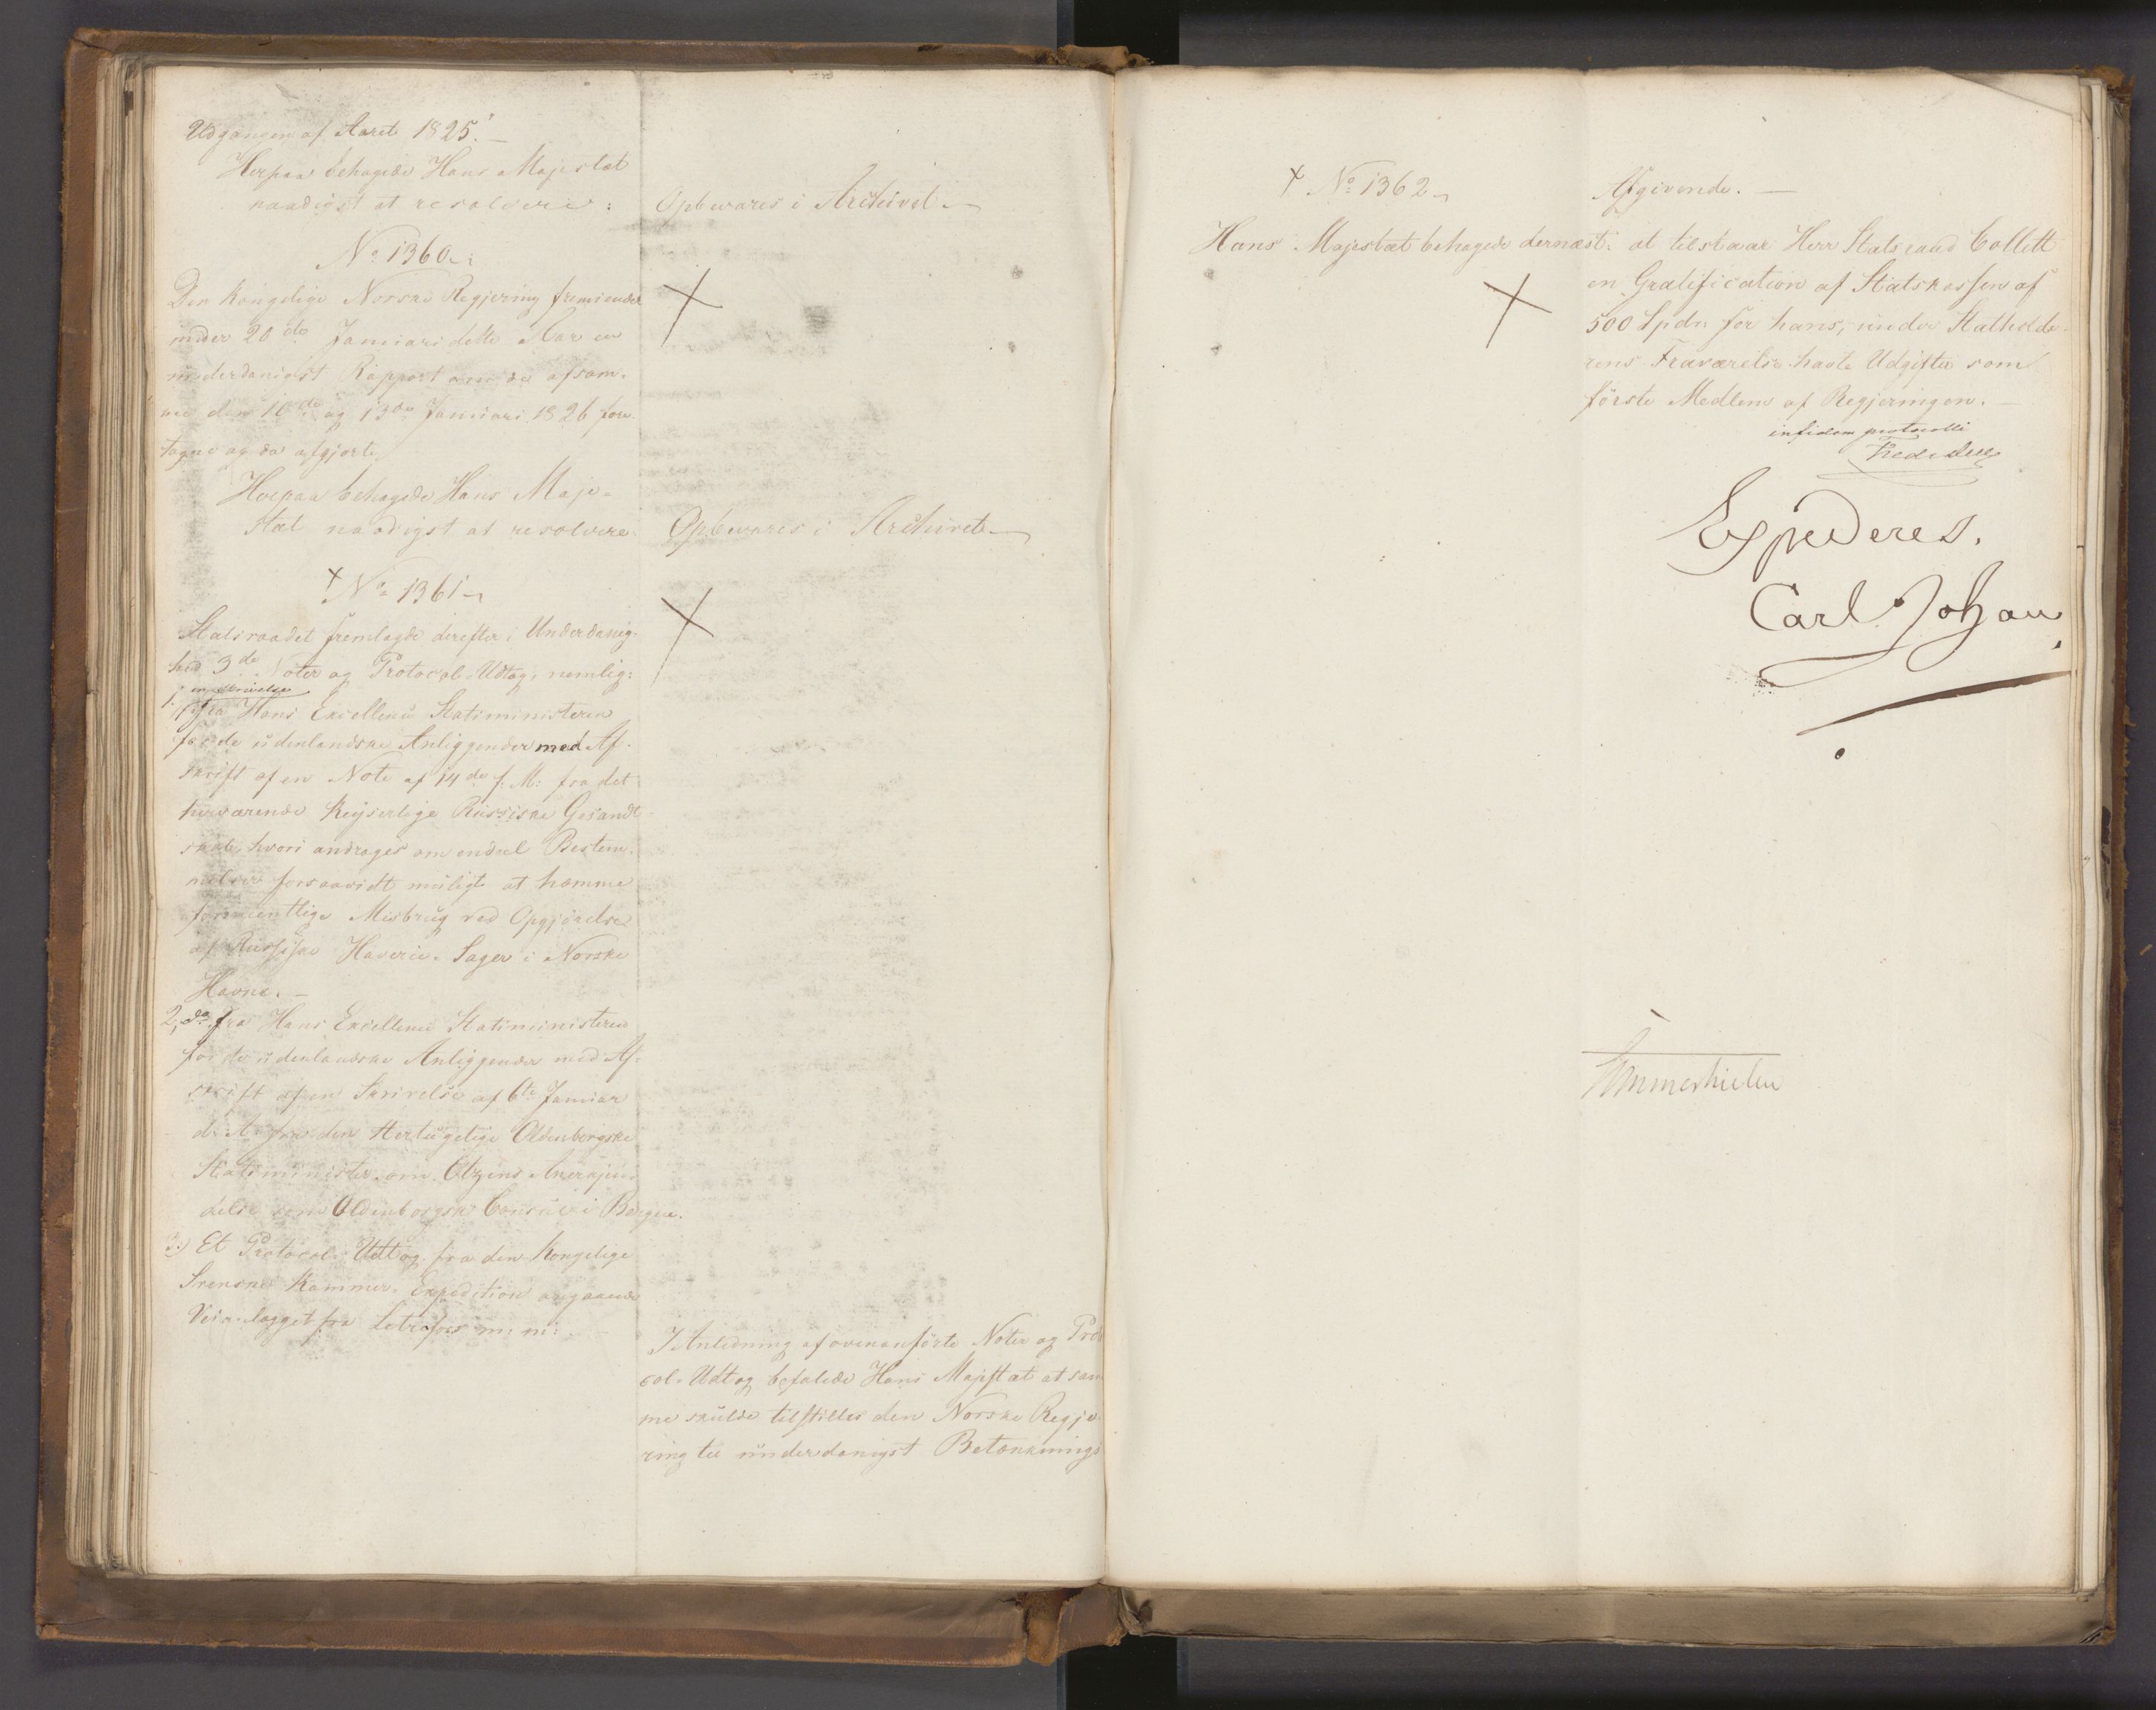 Udgangen af Aaret 1825. —
Herpaa behagede Hans Majestæt
naadigst at resolvere:
Opbevares i Archivet. —
No 1360.
Den Kongelige Norske Regjering fremsender
under 20de Januari dette Aar en
underdanigst Rapport over de af samme
den 10de og 13de Januari 1826 fore-
tagne og da afgjorte
Herpaa behagede Hans Maje-
stæt naadigst at resolvere:
Opbevares i Archivet —
+ No 1361
Statsraadet fremlagde derefter i Underdanig-
hed 3de Noter og Protocol-Udtog, nemlig:
1. en Skrivelse
fra Hans Excellence Statsministeren
for de udenlandske Anliggender med Af-
skrift af en Note af 14de f. M: fra det
herværende Keyserlige Russiske Gesandt
skab, hvori andrages om endeel Bestem-
melser forsaavidt muligt at hæmme
formeentlige Misbrug ved Opgjørelse
af Russiske Haverie-Sager i Norske
Havne. —
2, do fra Hans Excellence Statsministeren
for de udenlandske Anliggender med Af-
skrift af en Skrivelse af 6te Januar
d. A. fra den Hertugelige Oldenborgske
Statsminister om Anerkjen-
delse som Oldenborgsk Consul i Bergen.
3.) Et Protocol-Udtog fra den Kongelige
Svenske Kammer-Expedition angaaende
Veianlægget fra m: m:
I Anledning af ovenanførte Noter og Proto
col-Udtog befalede Hans Majestæt at sam
me skulde tilstilles den Norske Regje-
ring til underdanigst Betænknings
+ No 1362
Afgivende. —
Hans Majestæt behagede dernæst: at tilstaae Herr Statsraad Collett
en Gratification af Statskassen af
500 Spdr: for hans, under Statholde-
rens Fraværelse havte Udgifter som
første Medlem af Regjeringen. —
in fidem protocolli
Expederes.
Carl Johan